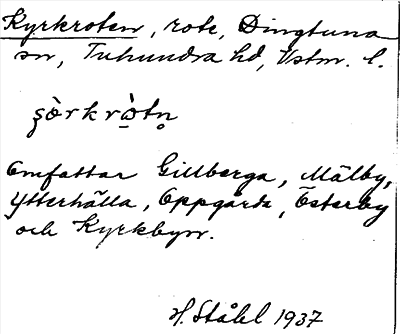 Kyrkroten, rote, Dingtuna
sn, Tuhundra hd, Vstm. l.
ʂò̀rkrò̠tn̥
Omfattar Gillberga, Mälby,
Ytterhälla, Oppgårda, Österby
och Kyrkbyn.
H. Ståhl 1937